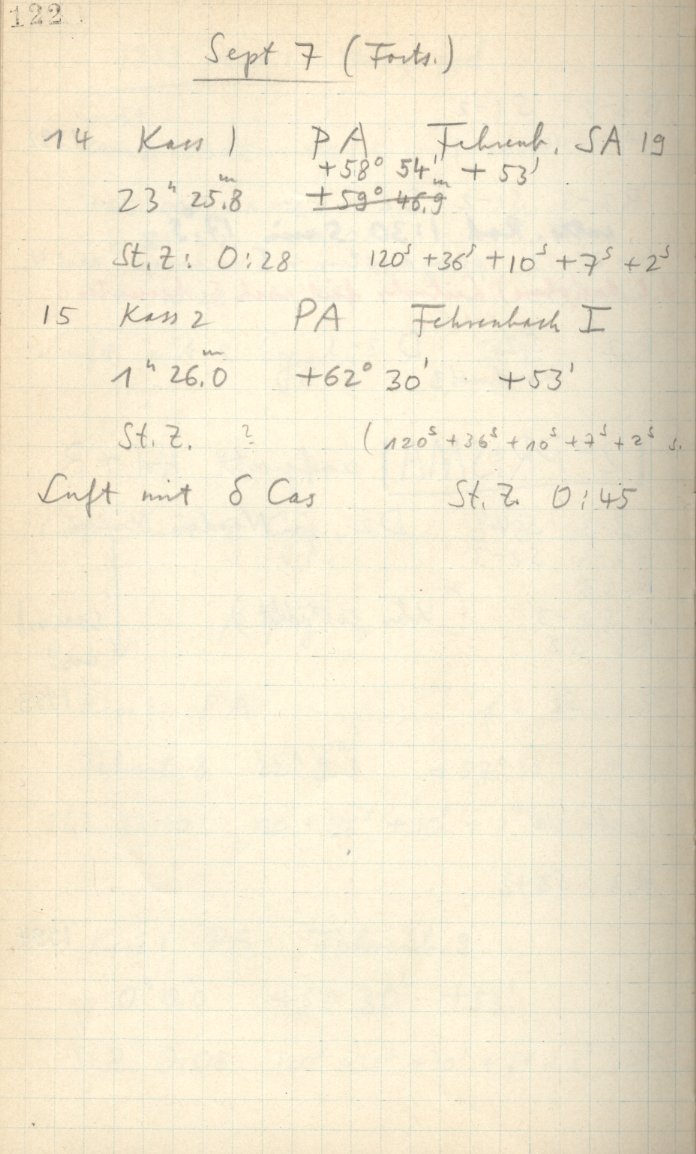 122
Sept 7 (Forts.)
14 Kass 1 PA Fehrenb. SA 19
+58° 54' + 53'
23ʰ 25ᵐ.8 +59° 46.9
St.Z: 0:28 120ˢ +36ˢ +10ˢ +7ˢ +2ˢ
15 Kass 2 PA Fehrenbach I
1ʰ 26ᵐ.0 +62° 30' +53'
St.Z. ? (120ˢ +36ˢ +10ˢ +7ˢ +2ˢ
Luft mit δ Cas St.Z. 0:45